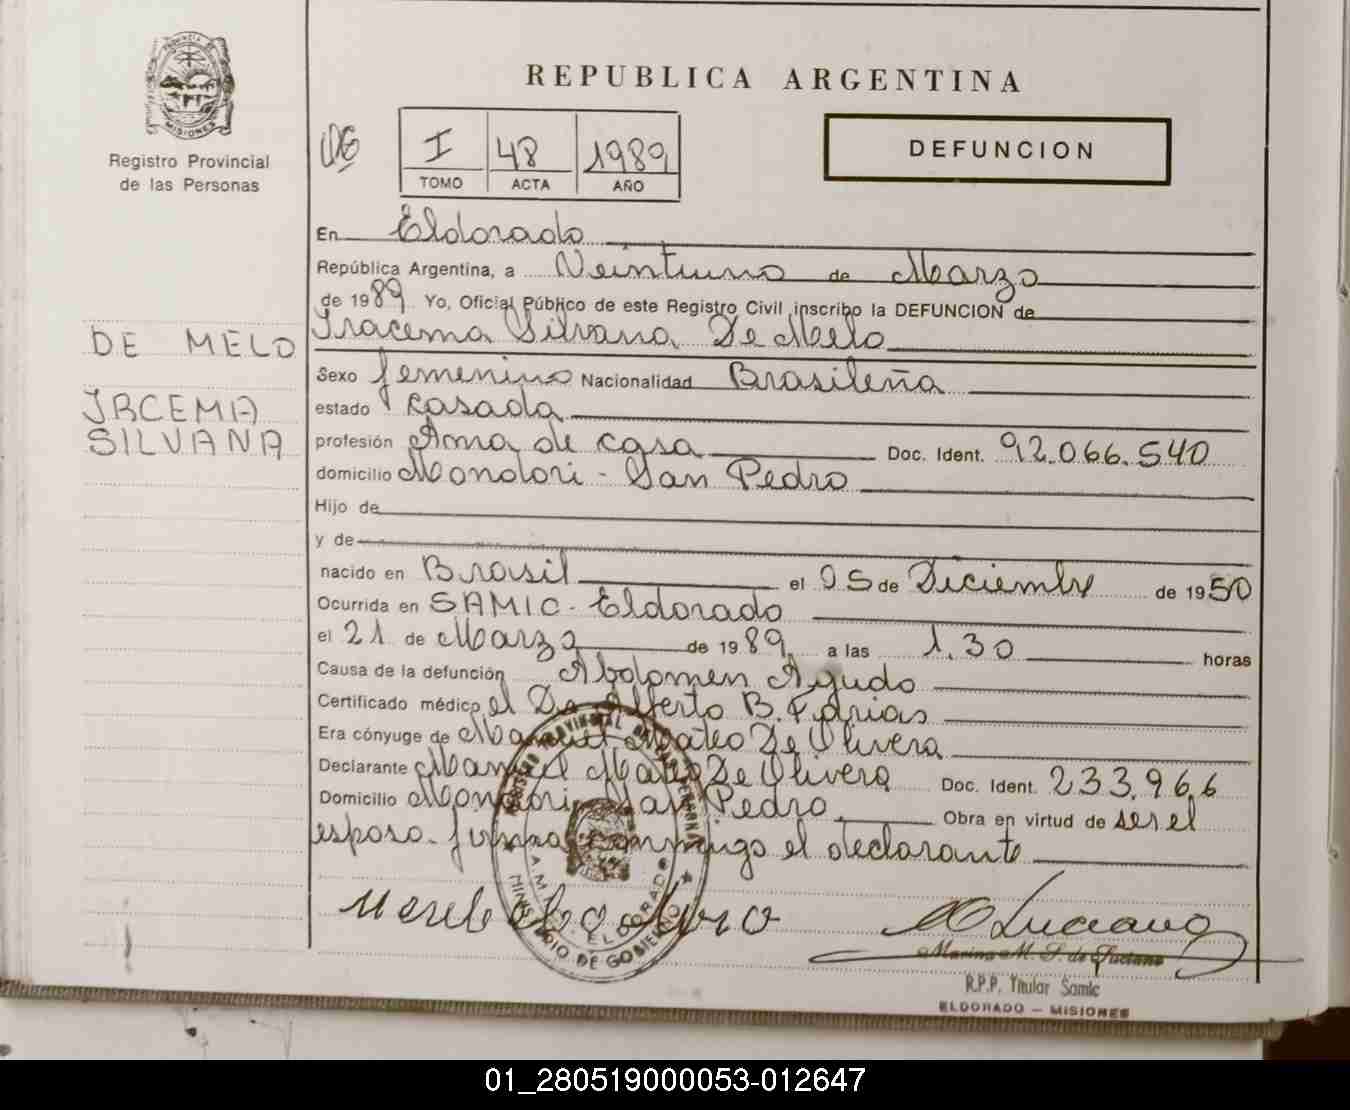 PROVINCIA DE
MISIONES
Registro Provincial
de las Personas
REPUBLICA ARGENTINA
I 48 1989
TOMO ACTA AÑO
DEFUNCION
En Eldorado
República Argentina, a Veintiuno de Marzo
de 1989 Yo, Oficial Público de este Registro Civil inscribo la DEFUNCION de
Iracema Silvana De Melo
DE MELO
IRCEMA
SILVANA
Sexo femenino Nacionalidad Brasileña
estado casada
profesión Ama de casa Doc. Ident. 92.066.540
domicilio Mondori - San Pedro
Hijo de
y de
nacido en Brasil el 05 de Diciembre de 1950
Ocurrida en SAMIC - Eldorado
el 21 de Marzo de 1989 a las 1.30 horas
Causa de la defunción Abdomen Agudo
Certificado médico el Dr Alberto B. Farias
Era cónyuge de Manuel Mateo De Olivera
Declarante Manuel Mateo De Olivera Doc. Ident. 233.966
Domicilio Mondori San Pedro Obra en virtud de ser el
esposo - firma conmigo el declarante
Luciano
Marina M. S. de Luciano
R.P.P. Titular Samic
ELDORADO - MISIONES
REGISTRO PROVINCIAL DE LAS PERSONAS
ELDORADO
MINISTERIO DE GOBIERNO
01_280519000053-012647